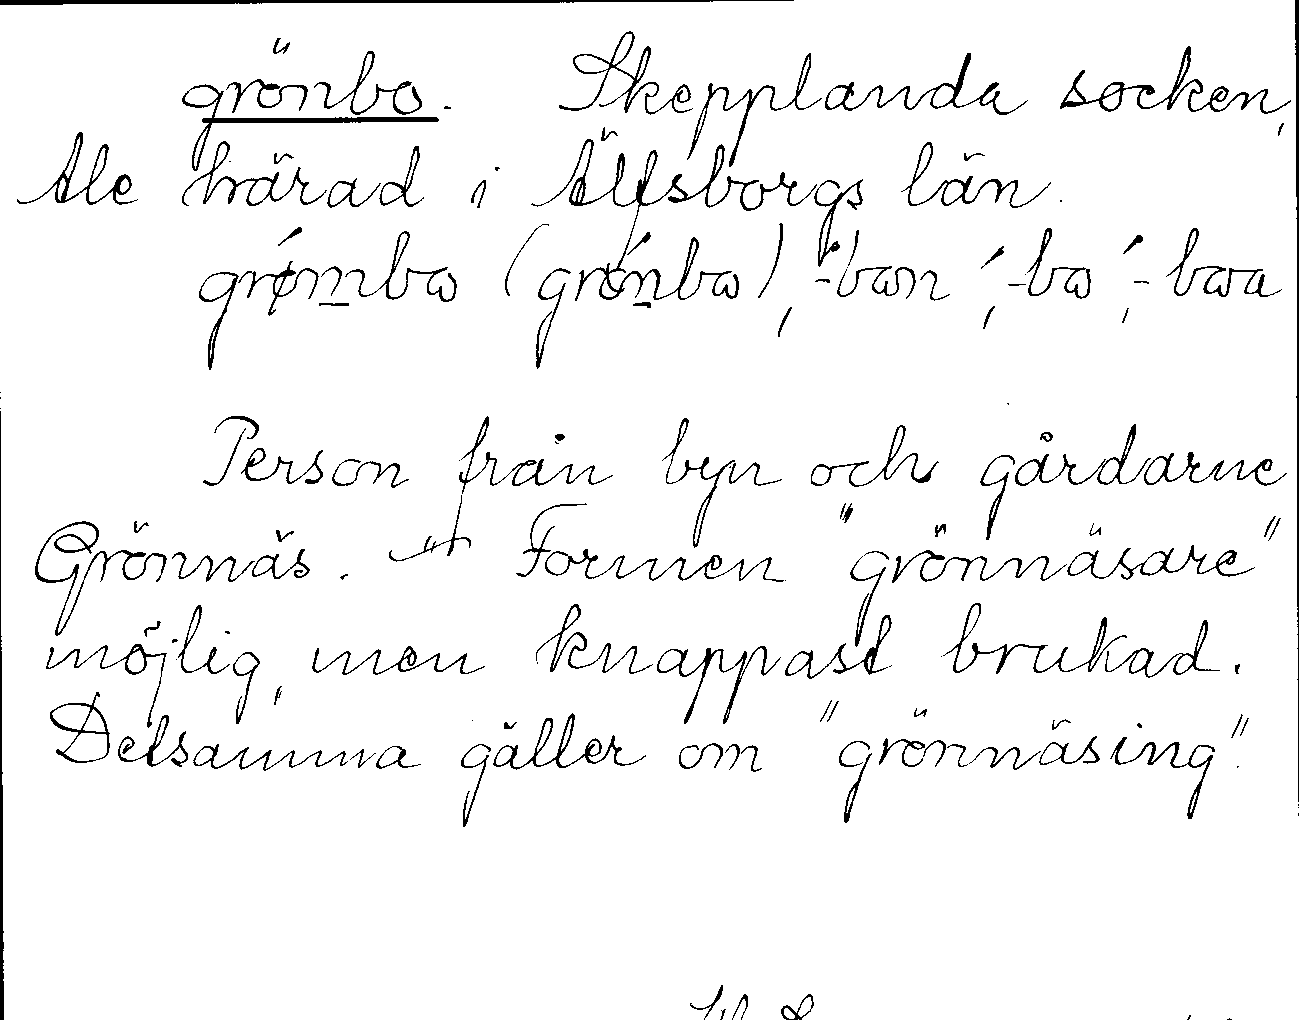 grönbo. Skepplanda socken,
Ale härad i Älfsborgs län.
grømbω (grønbω), -bωn, -bω, -bωa
Person från byn och gårdarne
Grönnäs. Formen "grönnäsare"
möjlig, men knappast brukad.
Detsamma gäller om "grönnäsing".